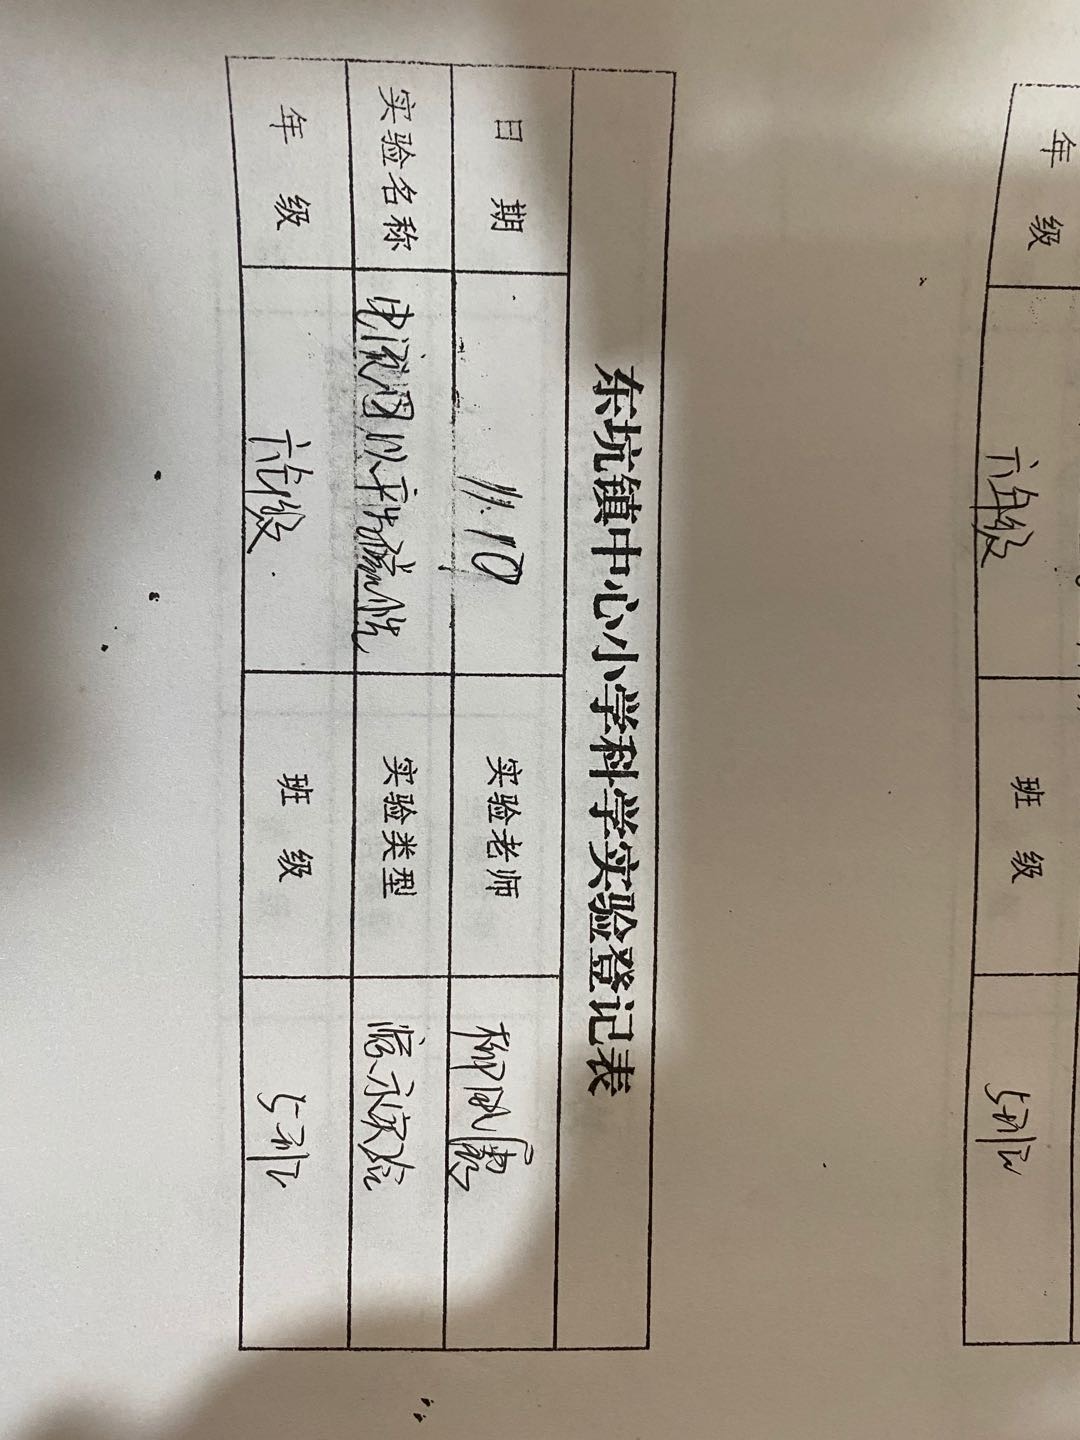 东坑镇中心小学科学实验登记表
日 期 11.10 实验老师
实验名称 电流可以产生磁性 实验类型 演示实验
年 级 六年级 班 级 5班
年 级 六年级 班 级 5班